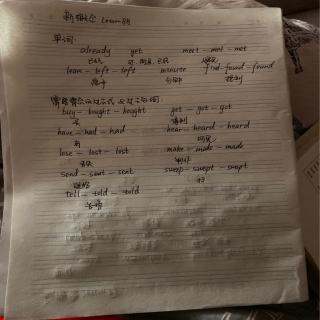 新概念 Lesson 83
单词:
already yet meet - met - met
已经 还, 仍 遇见
leave - left - left minute find - found - found
离开 分钟 找到
的过去式 过去分词:
buy - bought - bought get - got - got
买 得到
have - had - had hear - heard - heard
有 听见
lose - lost - lost make - made - made
丢失 制作
send - sent - sent sweep - swept - swept
扫
tell - told - told
告诉